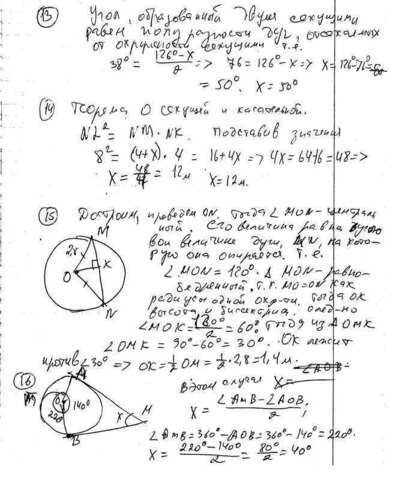 13) Угол, образованный двумя секущими
равен полу разности дуг, отсекаемых
от окружности секущими т.е.
38° = (126°-X)/2 => 76 = 126°-X => X = 126°-76°=50
= 50°. X = 50°
14) Теорема о секущей и касательной.
NL² = NM·NK. Подставив значения
8² = (4+X)·4 = 16+4X => 4X = 64-16 = 48 =>
X = 48/4 = 12м X = 12м.
15) Достроим, проведем ON, тогда ∠MON - централь
ный. Его величина равна дуго
вой величине дуги, MN, на кото-
рую она опирается. т.е.
∠MON = 120°. Δ MON - равно-
бедренный, т.к. MO=ON как
радиусы одной окр-ти. тогда OK
высота и биссектриса. след-но
∠MOK = 120°/2 = 60° тогда из ΔOMK
∠OMK = 90°-60° = 30°. OK лежит
против ∠30° => OK = 1/2 OM = 1/2 · 2,8 = 1,4 м.
M
2,8
O
K
N
16)
В этом случае X =
∠AOB
X = (∠AmB - ∠AOB)/2;
∠AmB = 360° - ∠AOB = 360° - 140° = 220°.
X = (220° - 140°)/2 = 80°/2 = 40°
A
m
O
140°
220°
B
X
M